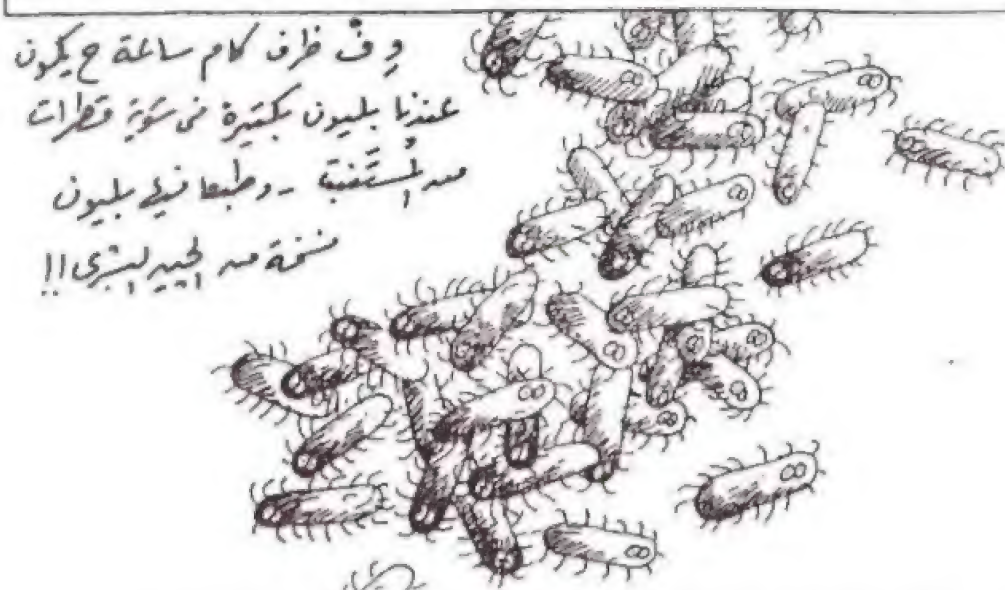 وفْ ظرف كام ساعة ح يكون
عندنا بليون بكتيرة فى شوية قطرات
من المُستَنبت - وطبعا فيها بليون
نسخة من الچين البشرى!!